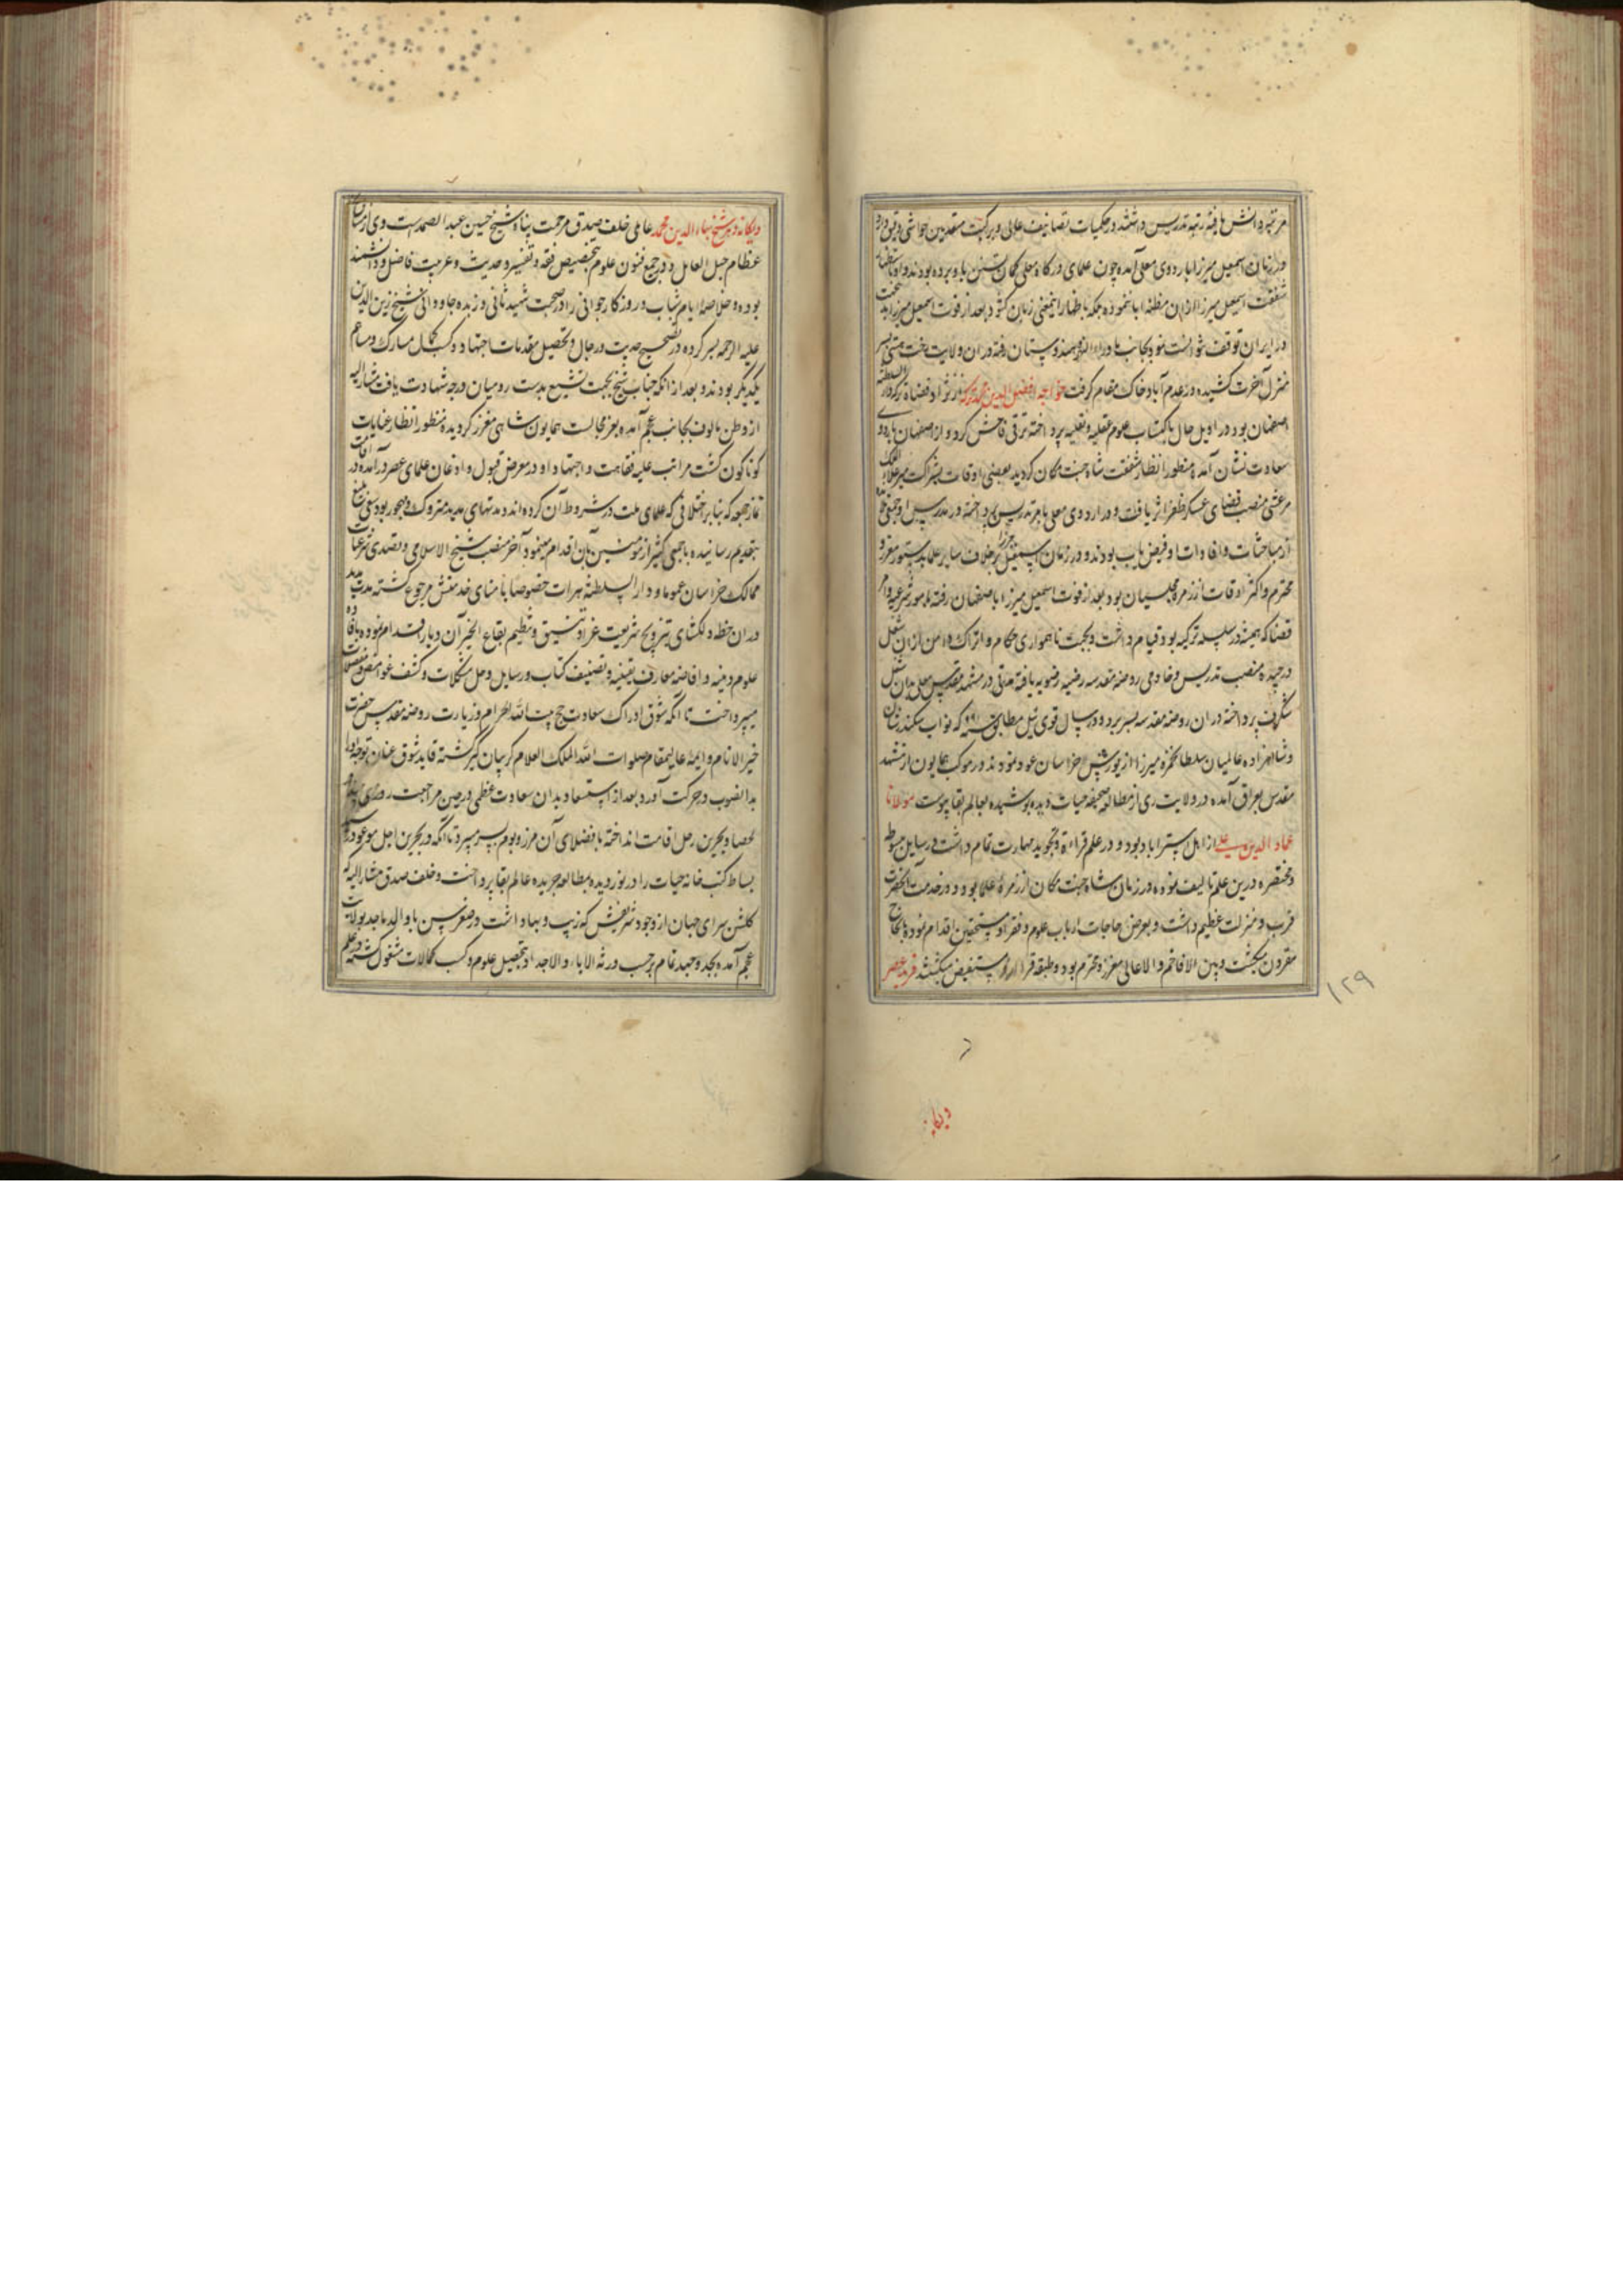 مرتبه دانش یافته رتبه تدریس داشتند در حکمیات تصانیف عالی و بر کتب متقدمین حواشی دقیق دارد
در زمان اسمعیل میرزا باردوی معلی آمده چون علمای درگاه معلی گمان تسنن باو برده بودند و او
شفقت اسمعیل میرزا از آن مظنه ابا ننموده بلکه باظهار اینمعنی زبان گشود بعد از فوت اسمعیل میرزا
در ایران توقف نتوانست نمود بجانب ماوراءالنهر و هندوستان رفته در آن ولایت رخت هستی بسر
منزل آخرت کشیده در عدم آباد خاک مقام گرفت خواجه افضل الدین محمد ترکه از نژاد قضاة ترکه دارالسلطنه
اصفهان بود در اویل حال باکتساب علوم عقلیه و نقلیه پرداخته ترقی فاحش کرد و از اصفهان باردوی
سعادت نشان آمده منظور انظار شفقت شاه جنت مکان گردید بعضی اوقات بشرکت میر علاءالملک
مرعشی منصب قضای عسکر ظفر اثر یافت و در اردوی معلی بامر تدریس پرداخته در مدرس او جمعی
از مباحثات و افادات او فیض یاب بودند و در زمان اسمعیل میرزا بر خلاف سایر علما بدستور معزز و
محترم و اکثر اوقات از زمره مجلسیان بود بعد از فوت اسمعیل میرزا باصفهان رفته بامور شرعیه و امر
قضا که همیشه در سلسله ترکیه بود قیام داشت و بجهت ناهمواری حکام و اتراک دامن از آن شغل
درچیده منصب تدریس و خادمی روضه مقدسه رضیه رضویه یافته مدتی در مشهد مقدس معلی بدان شغل
شگرف پرداخته در آن روضه مقدسه بسر برد و در سال قوی ئیل مطابق سنه ۹۹۱ که نواب سکندرشان
و شاهزاده عالمیان سلطان حمزه میرزا از یورش خراسان عود نمودند در موکب همایون از مشهد
مقدس بعراق آمده در ولایت ری از مطالعه صحیفه حیات دیده پوشیده بعالم بقا پیوست مولانا
عماد الدین علی از اهل استراباد بود و در علم قراءة و تجوید مهارت تمام داشت و رسایل مبسوط
و مختصره درین علم تالیف نموده در زمان شاه جنت مکان از زمرهٔ علما بود و در خدمت آنحضرت
قرب و منزلت عظیم داشت و بعرض حاجات ارباب علوم و فقرا و مستحقین اقدام نموده بانجاح
مقرون میگشت و بین الافاخم و الاعالی معزز و محترم بود و طبقه قرا ازو مستفیض میگشتند فرید عصر
۱۲۹
ویگانه
ویگانه دهر شیخ بهاء الدین محمد عاملی خلف صدق مرحمت پناه شیخ حسین عبد الصمد است وی از مشایخ
عظام جبل العامل و در جمیع فنون علوم بتخصیص فقه و تفسیر و حدیث و عربیت فاضل و دانشمند
بوده و خلاصه ایام شباب و روزگار جوانی را در صحبت شهید ثانی و زبده جاودانی شیخ زین الدین
علیه الرحمه بسر کرده در تصحیح حدیث و رجال و تحصیل مقدمات اجتهاد و کسب کمال مشارک و مساهم
یکدیگر بودند و بعد از آنکه جناب شیخ بجهت تشیع بدست رومیان درجه شهادت یافت مشارالیه
از وطن مالوف بجانب عجم آمده بعز مجالست همایون شاهی معزز گردیده منظور انظار عنایات
گوناگون گشت مراتب علیه فقاهت و اجتهاد او در معرض قبول و اذعان علمای عصر درآمده در اقامت
نماز جمعه که بنابر اختلافی که علمای ملت در شروط آن کرده اند و مدتهای مدید متروک و مهجور بود سعی بلیغ
بتقدیم رسانیده باجمعی کثیر از مومنین بآن اقدام مینمود و آخر منصب شیخ الاسلامی و تصدی شرعیات
ممالک خراسان عموما و دار السلطنه هرات خصوصا بامنای خدمتش مرجوع گشته مدت مدید
در آن خطه دلگشای بترویج شریعت غرا و تنسیق و تنظیم بقاع الخیر آن دیار اقدام نموده بافاده
علوم دینیه و افاضه معارف یقینیه و تصنیف کتاب و رسایل و حل مشکلات و کشف غوامض معضلات
میپرداخت تا آنکه شوق ادراک سعادت حج بیت الله الحرام و زیارت روضه مقدس حضرت
خیر الانام و ایمه عالیمقام صلوات الله الملک العلام گریبان گیر گشته قاید شوق عنان توجه اورا
بدانصوب در حرکت آورد بعد از استسعاد بدان سعادت عظمی در حین مراجعت
لحصا و بحرین رحل اقامت انداخته با فضلای آن مرز و بوم بسر میبرد تا آنکه در بحرین اجل موعود
بساط کتب خانه حیات را در نوردیده بمطالعه جریده عالم بقا پرداخت و خلف صدق مشارالیه که
گلشن سرای جهان از وجود شریفش که زیب و بها داشت در صغر سن با والد ماجد بولایت
عجم آمده بجد و جهد تمام برحسب ورثه الاباء و الاجداد بتحصیل علوم و کسب کمالات مشغول گشته در علم